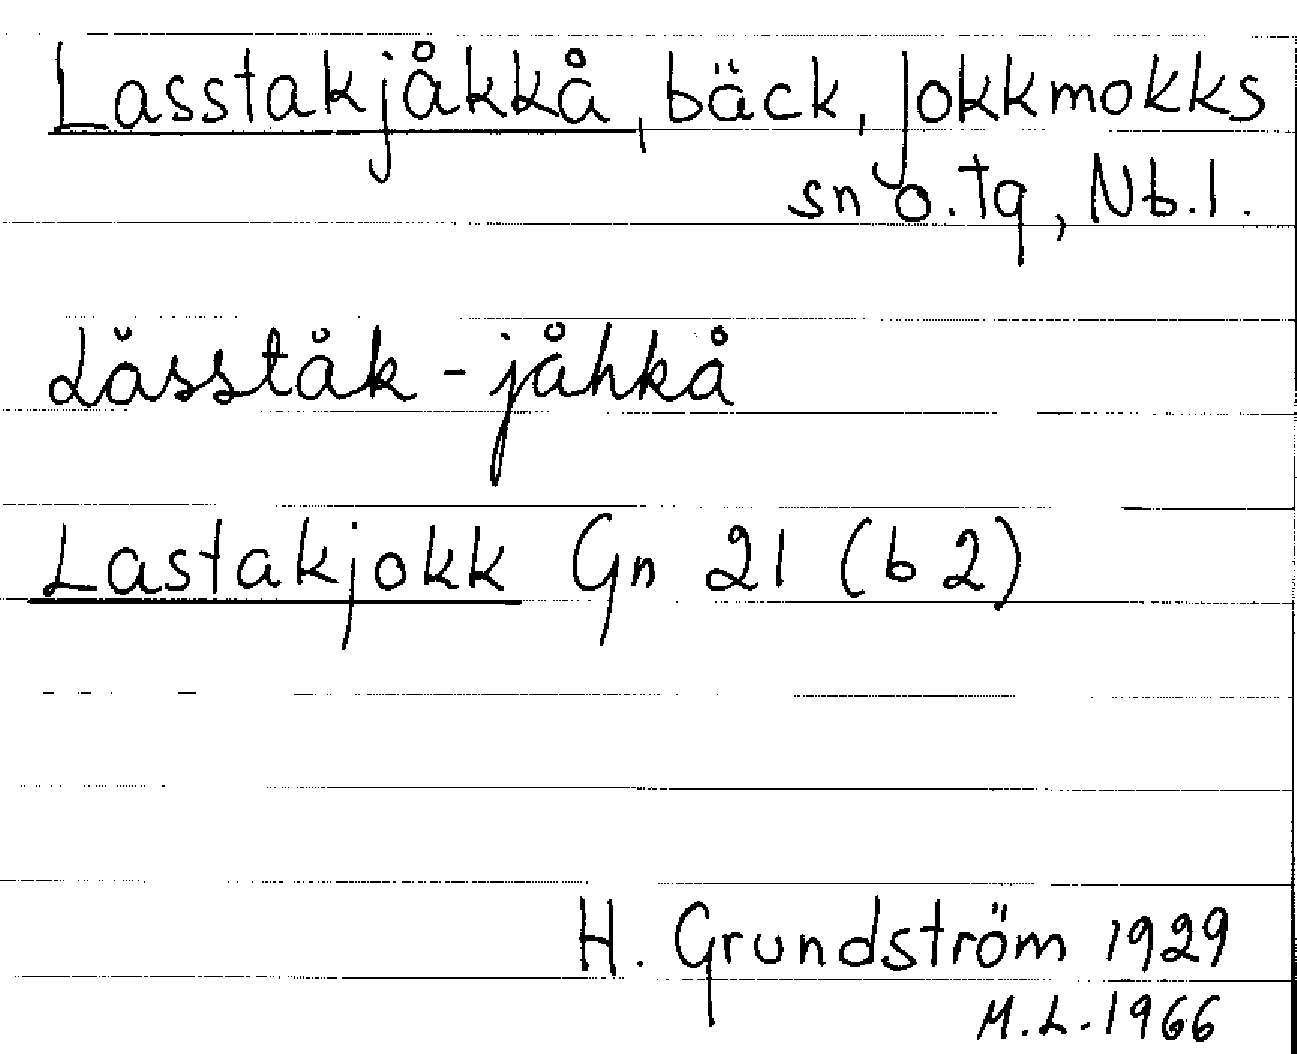 Lasstakjåkkå, bäck, Jokkmokks
sn o. tg, Nb. l.
Lǎsstǎk - jåhkå
Lastakjokk Gn 21 (b 2)
H. Grundström 1929
M.L. 1966